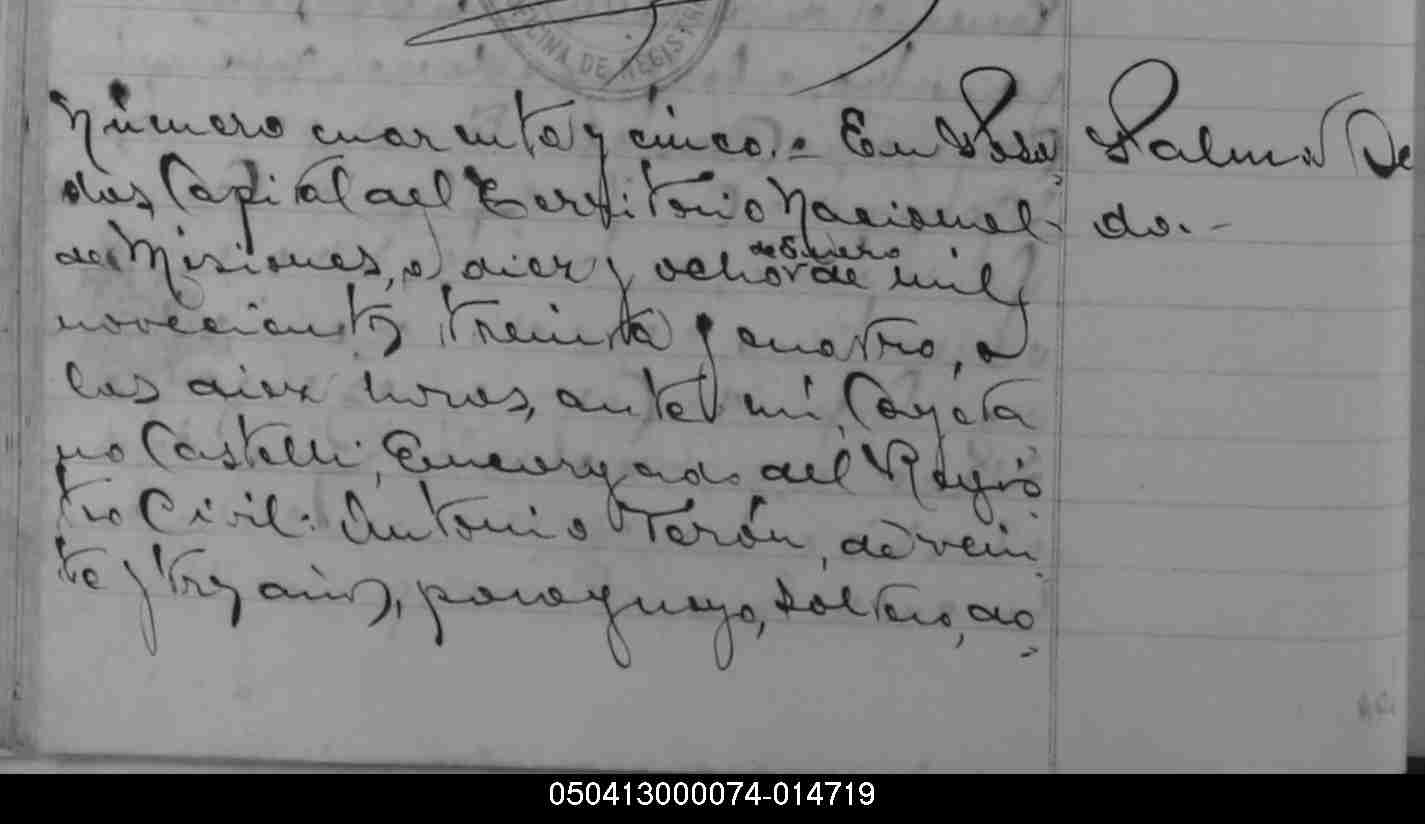 OFICINA DE REGISTR
Número cuarenta y cinco.- En Posa
das, Capital del Territorio Nacional
de Misiones, a diez y ocho de Enero de mil
novecientos treinta y cuatro, a
las diez horas, ante mi Cayeta
no Castelli, Encargado del Regis
tro Civil: Antonio Terán, de vein
te y tres años, paraguayo, soltero, do
Palmi
do.-
050413000074-014719